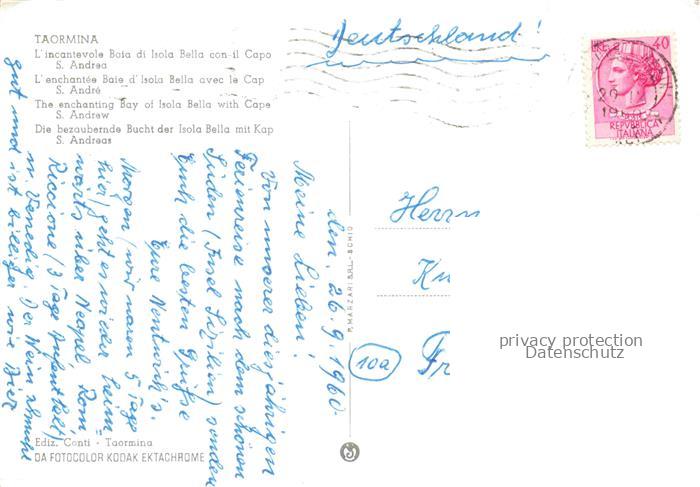 TAORMINA
L'incantevole Baia di Isola Bella con il Capo
S. Andrea
L'enchantée Baie d'Isola Bella avec le Cap
S. André
The enchanting Bay of Isola Bella with Cape
S. Andrew
Die bezaubernde Bucht der Isola Bella mit Kap
S. Andreas
Deutschland!
LIRE 40
REPVBBLICA
ITALIANA
den, 26.9.1960
Meine Lieben!
Von unserer diesjährigen
Ferienreise nach dem schönen
Süden (Insel Sizilien) senden
Euch die besten Grüße
Eure Nentwich's.
Morgen (wir waren 5 Tage
hier) geht es wieder heim-
wärts über Neapel, Rom
Riccione (3 Tage Aufenthalt)
u. Venedig. Der Wein schmeckt
gut und ist billiger wie Bier
P. MARZARI S.R.L. - SCHIO
Herrn
(10a)
Fr
privacy protection
Datenschutz
Ediz. Conti - Taormina
DA FOTOCOLOR KODAK EKTACHROME